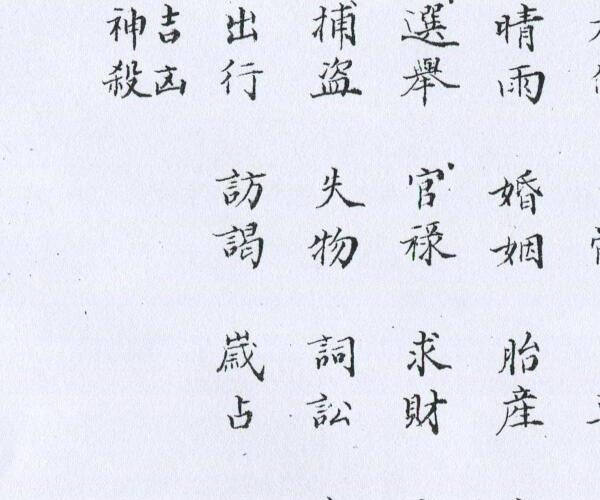 晴雨 婚姻 胎産
選舉 官祿 求財
捕盜 失物 詞訟
出行 訪謁 嵗占
吉凶
神殺